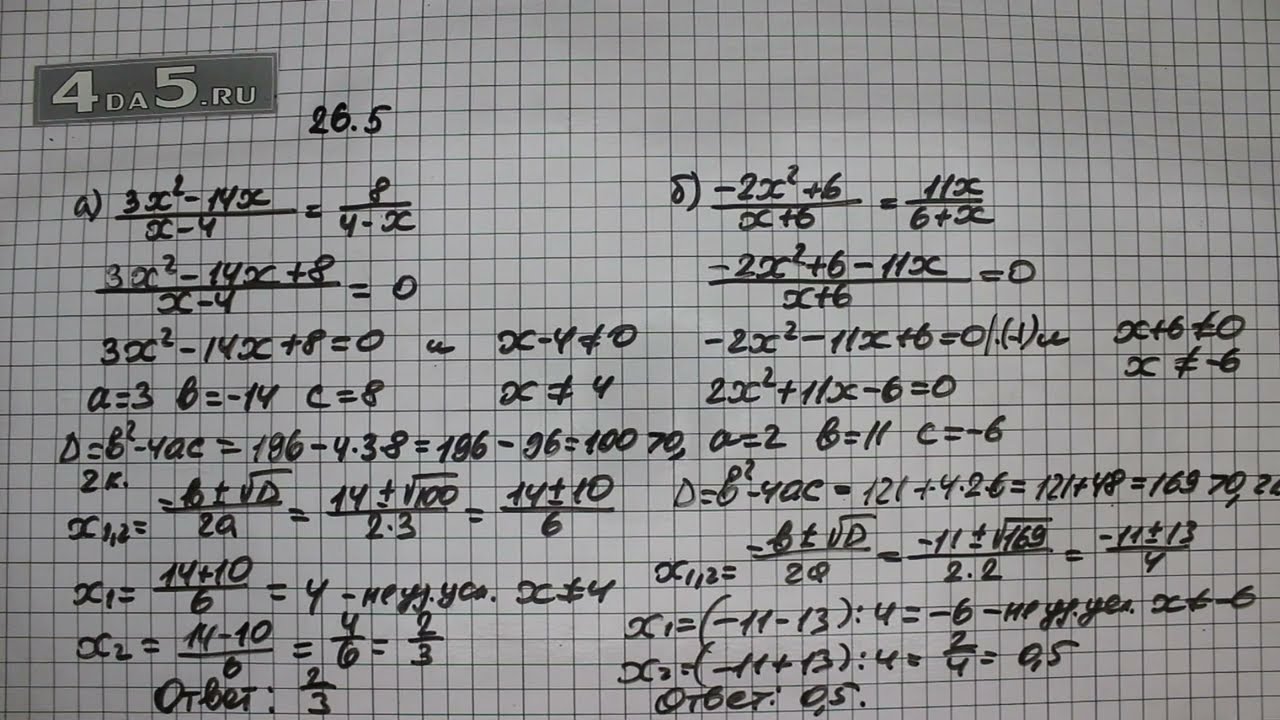 4DA5.RU
26.5
а) (3x²-14x)/(x-4) = 8/(4-x)
(3x²-14x+8)/(x-4) = 0
3x²-14x+8=0 и x-4≠0
a=3 b=-14 c=8 x ≠ 4
D=b²-4ac = 196-4·3·8=196-96=100>0,
2к.
x₁,₂= (-b±√D)/(2a) = (14±√100)/(2·3) = (14±10)/6
x₁= (14+10)/6 = 4 - не уд. усл. x≠4
x₂ = (14-10)/6 = 4/6 = 2/3
Ответ: 2/3
б) (-2x²+6)/(x+6) = 11x/(6+x)
(-2x²+6-11x)/(x+6) = 0
-2x²-11x+6=0|·(-1) и x+6≠0
x ≠-6
2x²+11x-6=0
a=2 b=11 c=-6
D=b²-4ac = 121+4·2·6=121+48=169>0, 2к
x₁,₂= (-b±√D)/(2a) = (-11±√169)/(2·2) = (-11±13)/4
x₁=(-11-13):4=-6-не уд. усл. x≠-6
x₂=(-11+13):4= 2/4 = 0,5
Ответ: 0,5.